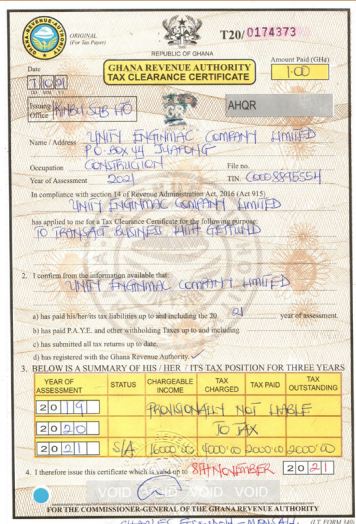 GHANA REVENUE AUTHORITY
ORIGINAL
(For Tax Payer)
T20/0174373
REPUBLIC OF GHANA
GHANA REVENUE AUTHORITY
TAX CLEARANCE CERTIFICATE
Amount Paid (GH¢)
1-00
Date
Issuing Office KINBU SUB
AHQR
Name / Address UNITY ENGINMAC COMPANY LIMITED
P.O. BOX 44 JUAPONG
Occupation CONSTRUCTION File no.
Year of Assessment 2021 TIN. C0008895554
In compliance with section 14 of Revenue Administration Act, 2016 (Act 915)
UNITY ENGINMAC COMPANY LIMITED
has applied to me for a Tax Clearance Certificate for the following purpose:
TO TRANSACT BUSINESS WITH GETFUND
2. I confirm from the information available that:
UNITY ENGINMAC COMPANY LIMITED
a) has paid his/her/its tax liabilities up to and including the 20 21 year of assessment.
b) has paid P.A.Y.E. and other withholding Taxes up to and including
c) has submitted all tax returns up to date.
d) has registered with the Ghana Revenue Authority. ✓
3. BELOW IS A SUMMARY OF HIS / HER / ITS TAX POSITION FOR THREE YEARS
YEAR OF ASSESSMENT STATUS CHARGEABLE INCOME TAX CHARGED TAX PAID TAX OUTSTANDING
2019 PROVISIONALLY NOT LIABLE
2020 TO TAX
2021 S/A 16000.00 4000.00 2000.00 2000.00
4. I therefore issue this certificate which is valid up to 8TH NOVEMBER 2021
VOID VOID VOID VOID
FOR THE COMMISSIONER-GENERAL OF THE GHANA REVENUE AUTHORITY
CHARLES MENSAH